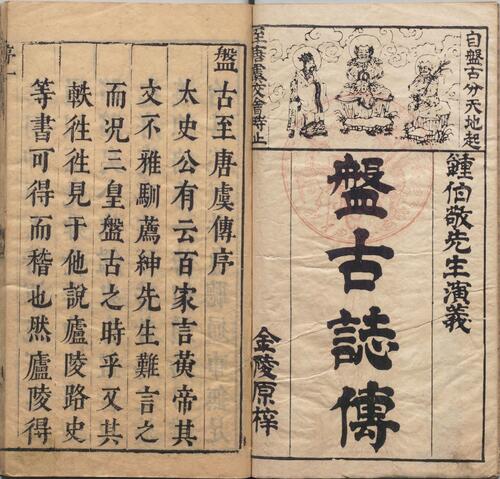 自盤古分天地起
至唐虞交會時止
鍾伯敬先生演義
盤古誌傳
金陵原梓
盤古至唐虞傳序
太史公有云百家言黃帝其
文不雅馴薦紳先生難言之
而况三皇盤古之時乎又其
軼徃徃見于他說廬陵路史
等書可得而稽也然廬陵得